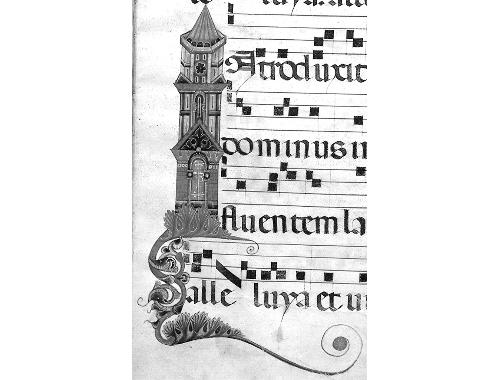 INtroduxit
dominus in
fluentem la
alle luya et